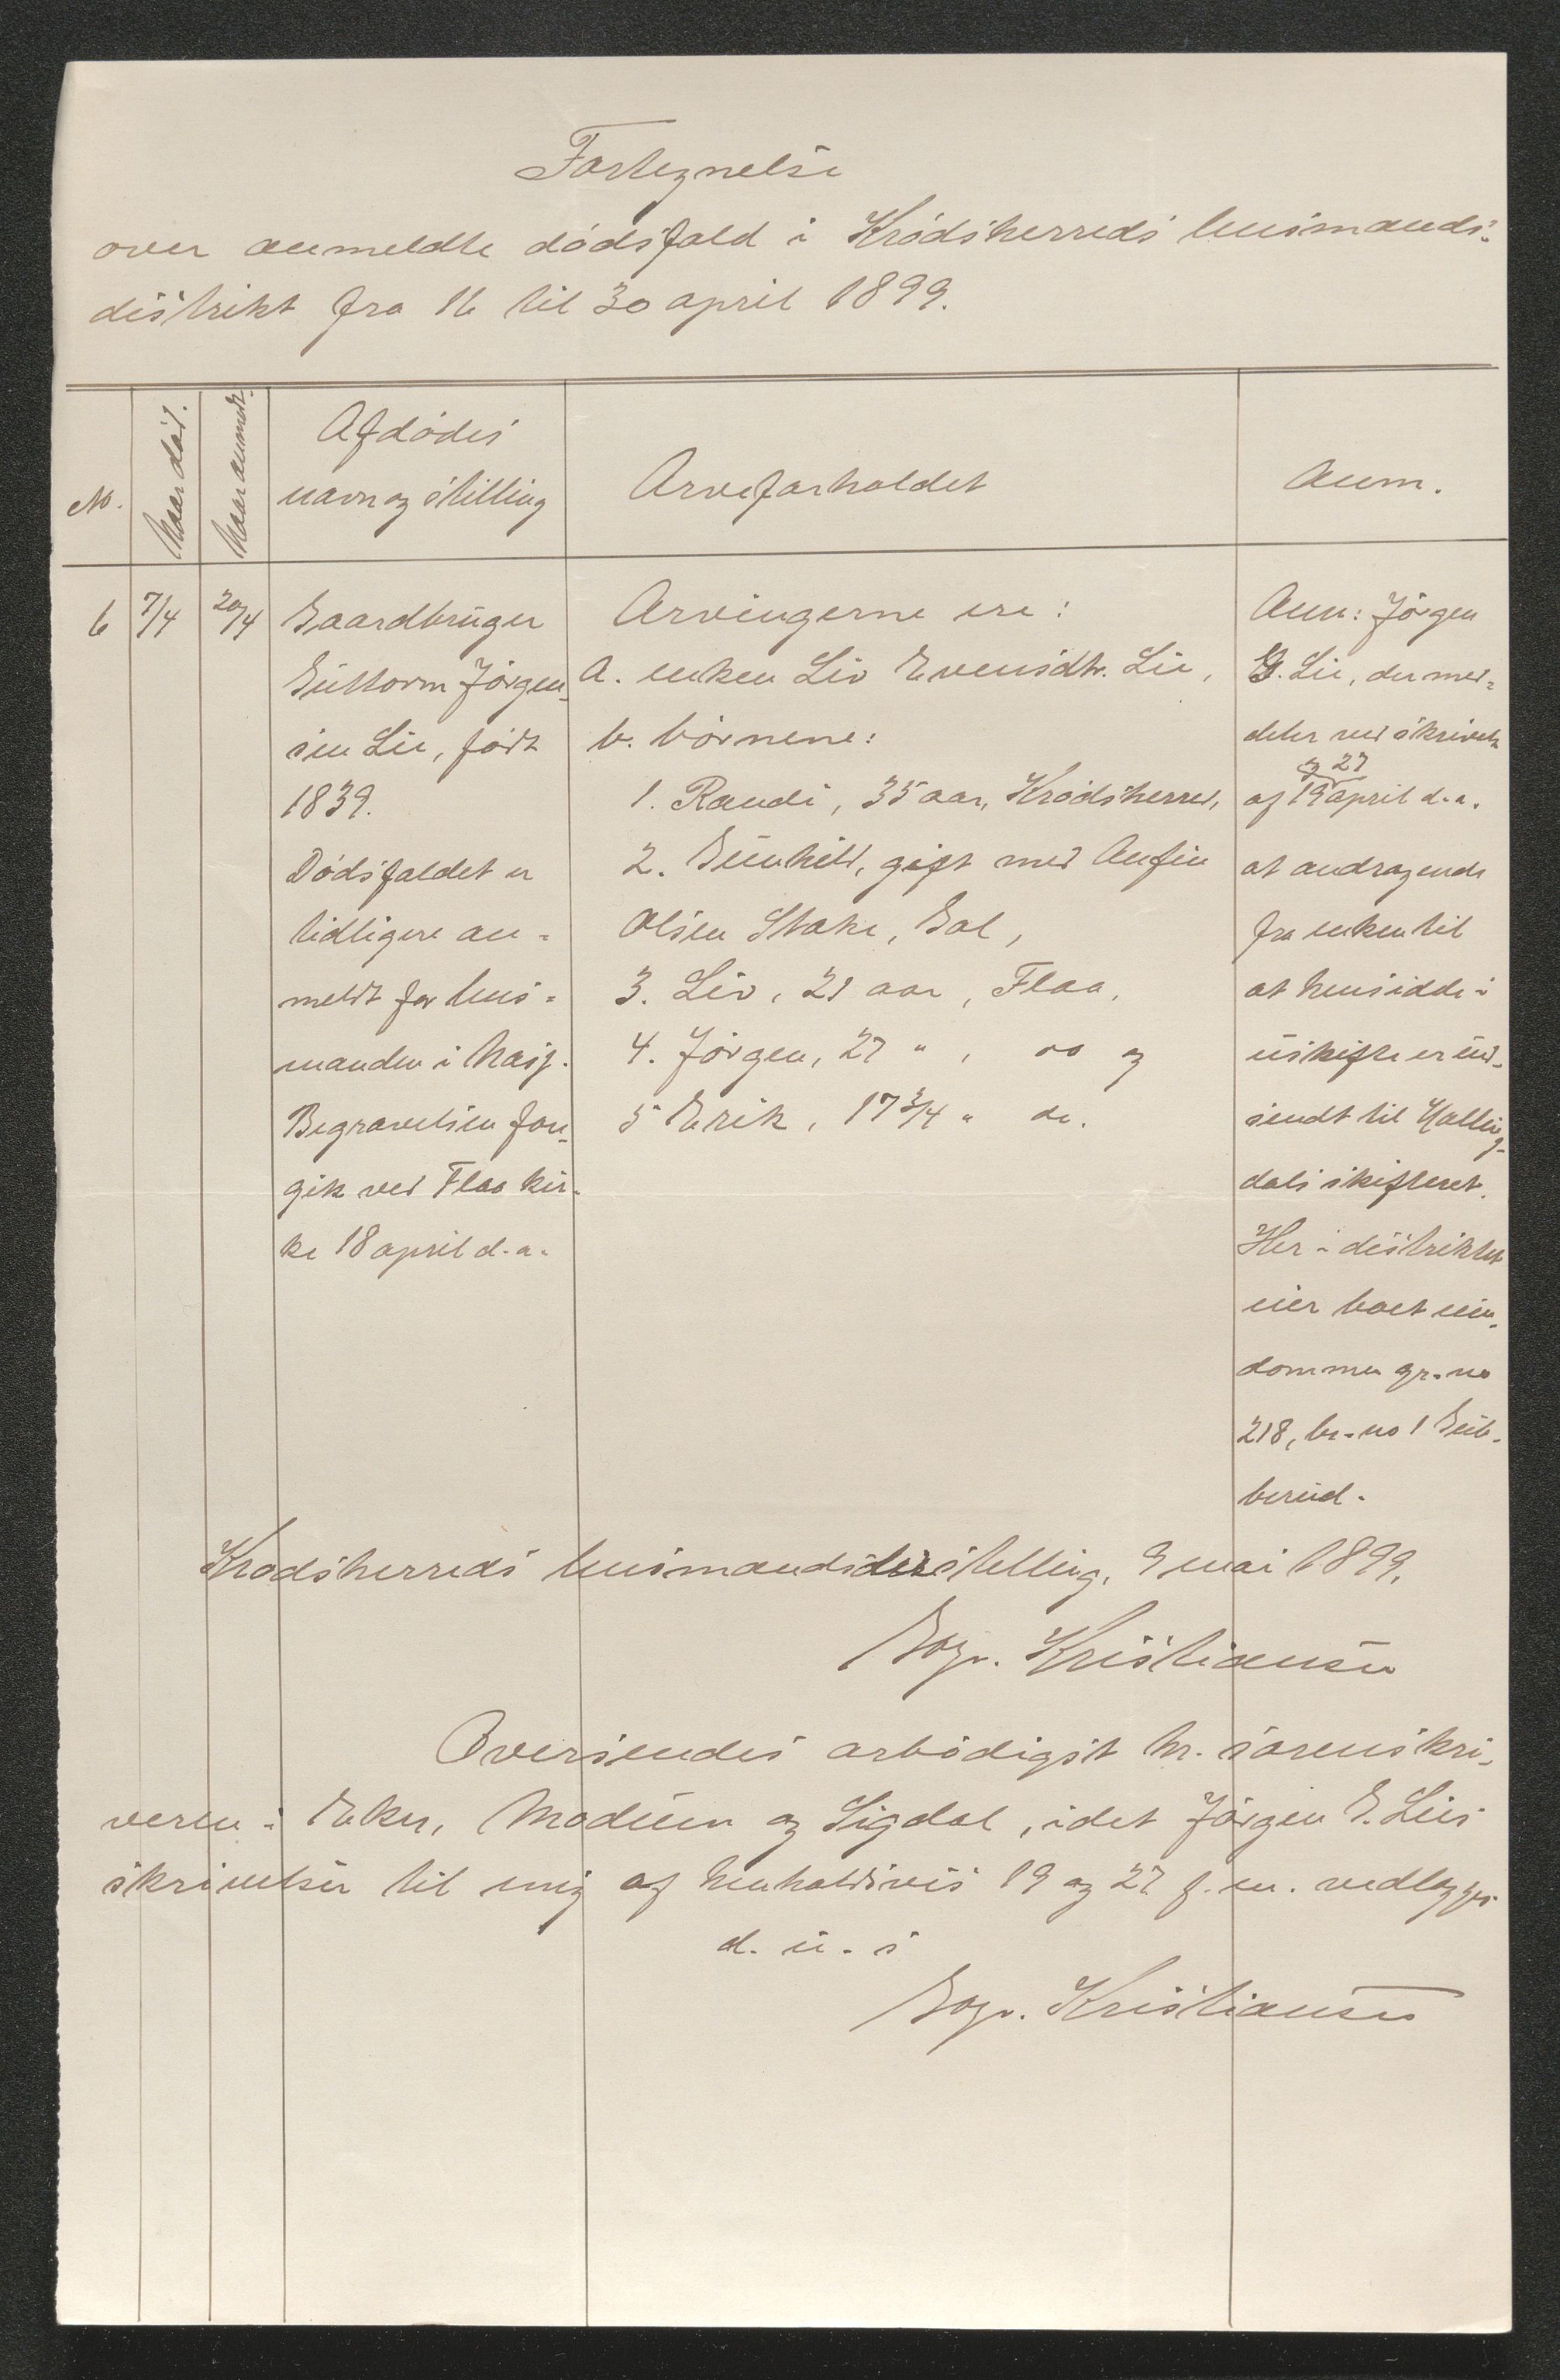 Fortegnelse
over anmeldte dødsfald i Krødsherreds lensmands-
distrikt fra 16 til 30 april 1899.
No.
Naar død.
Naar anmeldt.
Afdødes
navn og stilling
Arveforholdet
Anm.
6
7/4
20/4
Gaardbruger
Guttorm Jørgen-
sen Lie, født
1839.
Dødsfaldet er
tidligere an-
meldt for lens-
manden i Næs.
Begravelsen fore-
gik ved Flaa kir-
ke 18 april d. a.
Arvingerne ere:
A. enken Liv Evensdtr. Lie,
b. børnene:
1. Randi, 35 aar, Krødsherred,
2. Gunhild, gift med Anfin
Olsen Stake, Gol,
3. Liv, 29 aar, Flaa,
4. Jørgen, 27 " , do og
5 Erik, 17 3/4 " do.
Anm: Jørgen
G. Lie, der med-
deler ved skrivelse
og 27
af 19 april d. a.
at andragende
fra enken til
at hensidde i
uskifte er ind-
sendt til Halling-
dals skifteret.
Her i distriktet
eier boet eien-
dommen gr. no
218, br. no 1 Gub-
berud.
Krødsherreds lensmandsbestilling, 9 mai 1899.
Kristiansen
Oversendes ærbødigst hr. sorenskri-
veren i Eker, Modum og Sigdal, idet Jørgen G. Lies
skrivelser til mig af henholdsvis 19 og 27 f. m. vedlægges
d. u. s
Kristiansen